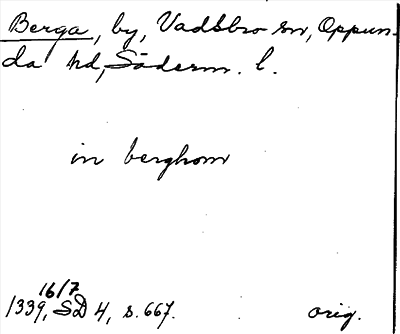 Berga, by, Vadsbro sn, Oppun-
da hd, Söderm. l.
in berghom
16/7
1339, SD 4, s. 667. orig.